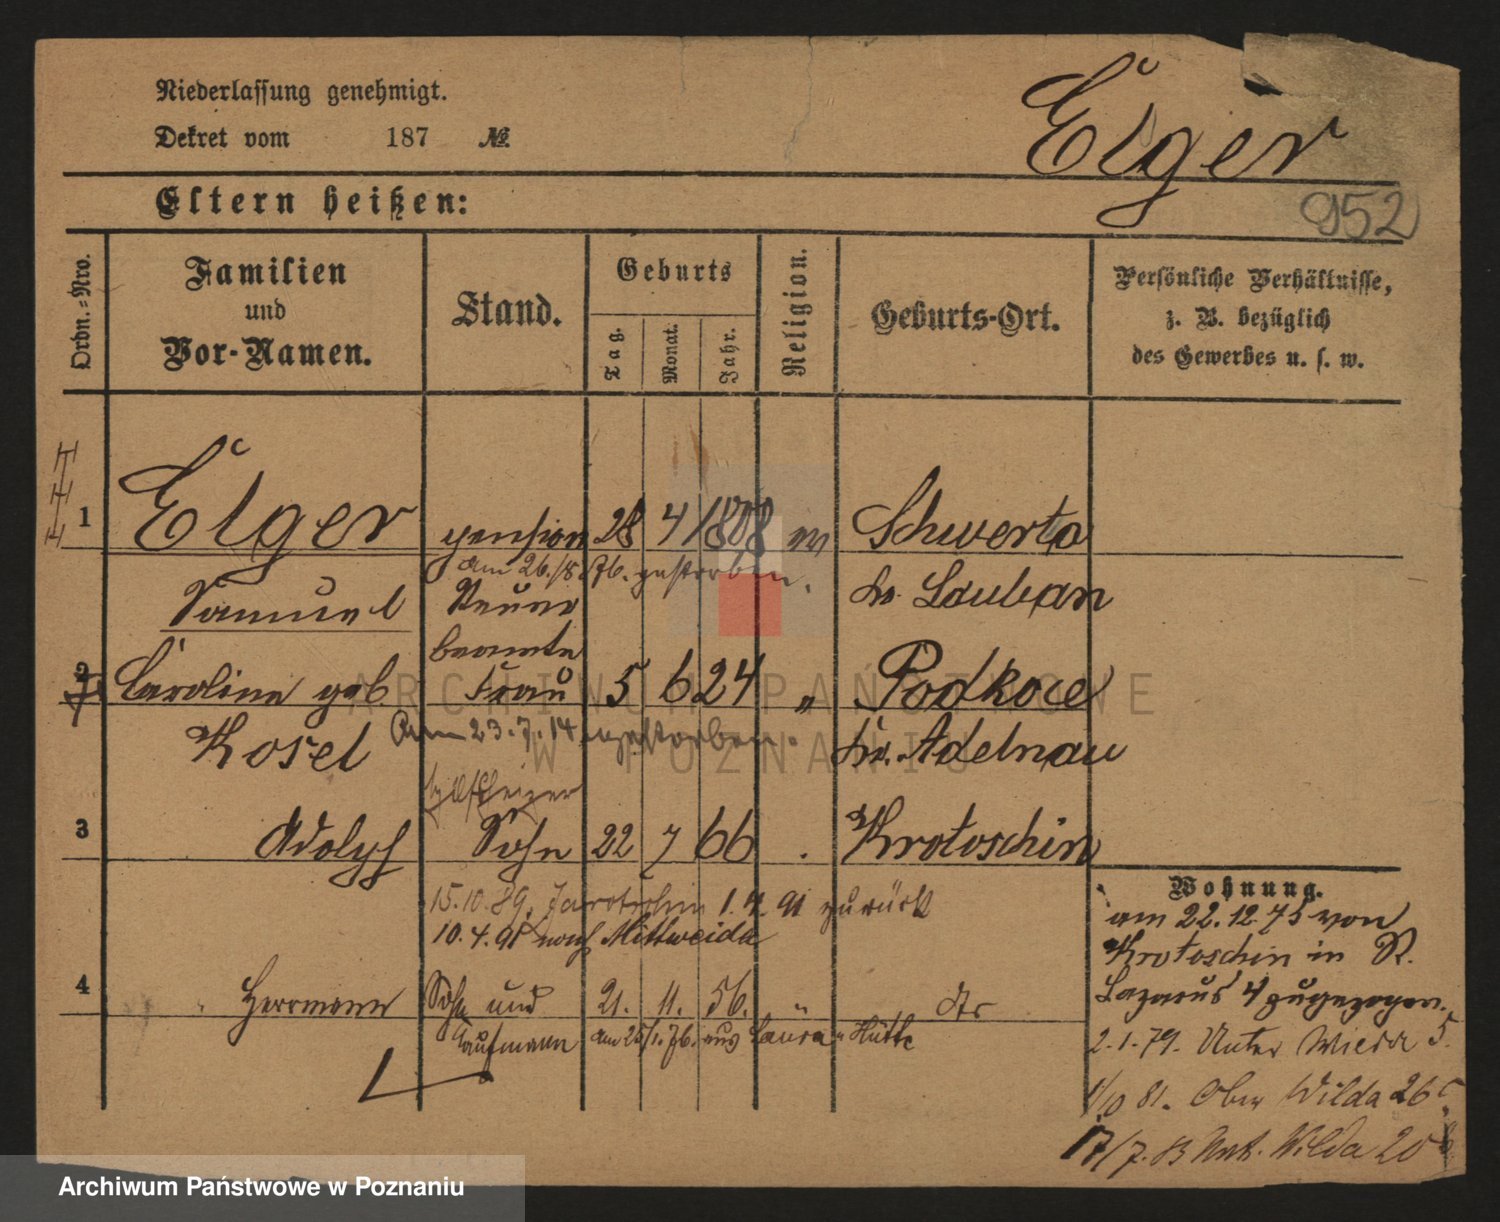 Niederlassung genehmigt.
Dekret vom 187 №
Elger
952
Eltern heißen:
Ordn.-Nro.
Familien
und
Vor-Namen.
Stand.
Geburts
Tag.
Monat.
Jahr.
Religion.
Geburts-Ort.
Persönliche Verhältnisse,
z. B. bezüglich
des Gewerbes u. s. w.
1 Elger pension 28 4 1808 Schwerta
am 26./8. 76. gestorben.
Samuel Steuer Kr. Lauban
beamte
2 Caroline geb. Frau 5 6 24 " Podkoce
Am 23.7.14 gestorben.
Kosel Kr. Adelnau
3 Adolph Sohn 22 7 66 Krotoschin
15.10.89. Jarotschin 1.4.91 zurück
10.4.91 nach Mittweida
4 Herrmann Sohn und 21. 11. 56. " dto
Kaufmann am 25/1.76. aus Laura-Hütte
Wohnung.
am 22.12.75 von
Krotoschin in St.
Lazarus 4 zugezogen.
2.1.79. Unter Wilda 5.
1/10 81. Ober Wilda 26
17/7.83 Unt. Wilda 20
ARCHIWUM PAŃSTWOWE
W POZNANIU
Archiwum Państwowe w Poznaniu